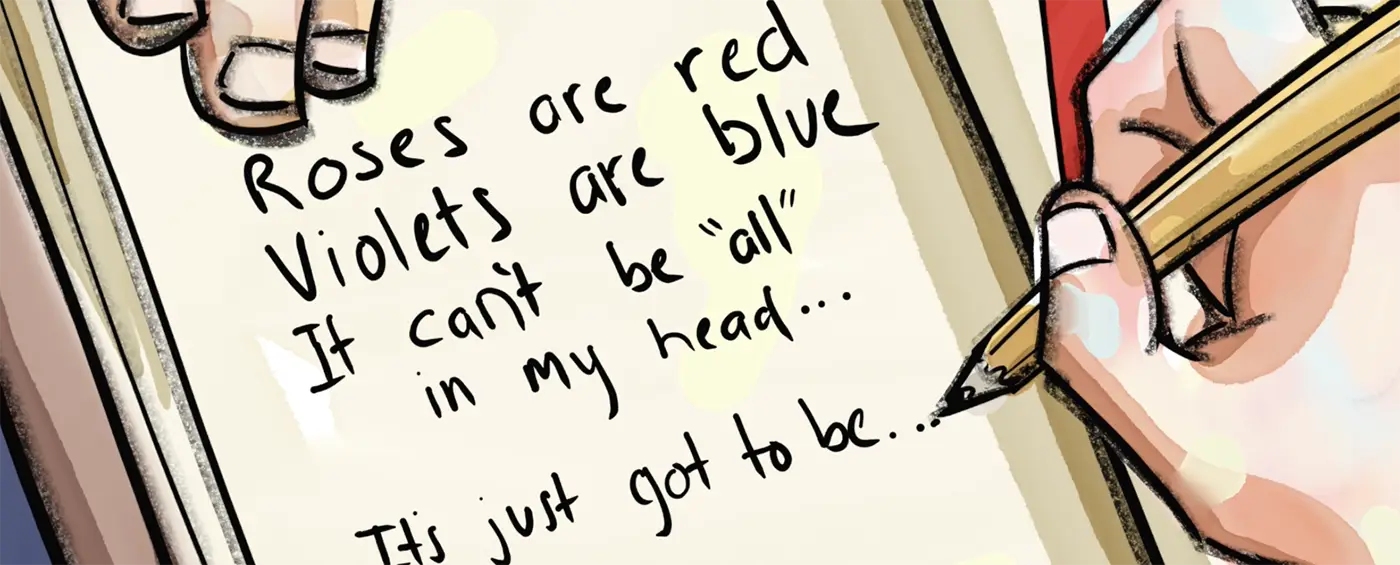 Roses are red
Violets are blue
It can't be "all"
in my head...
It's just got to be...